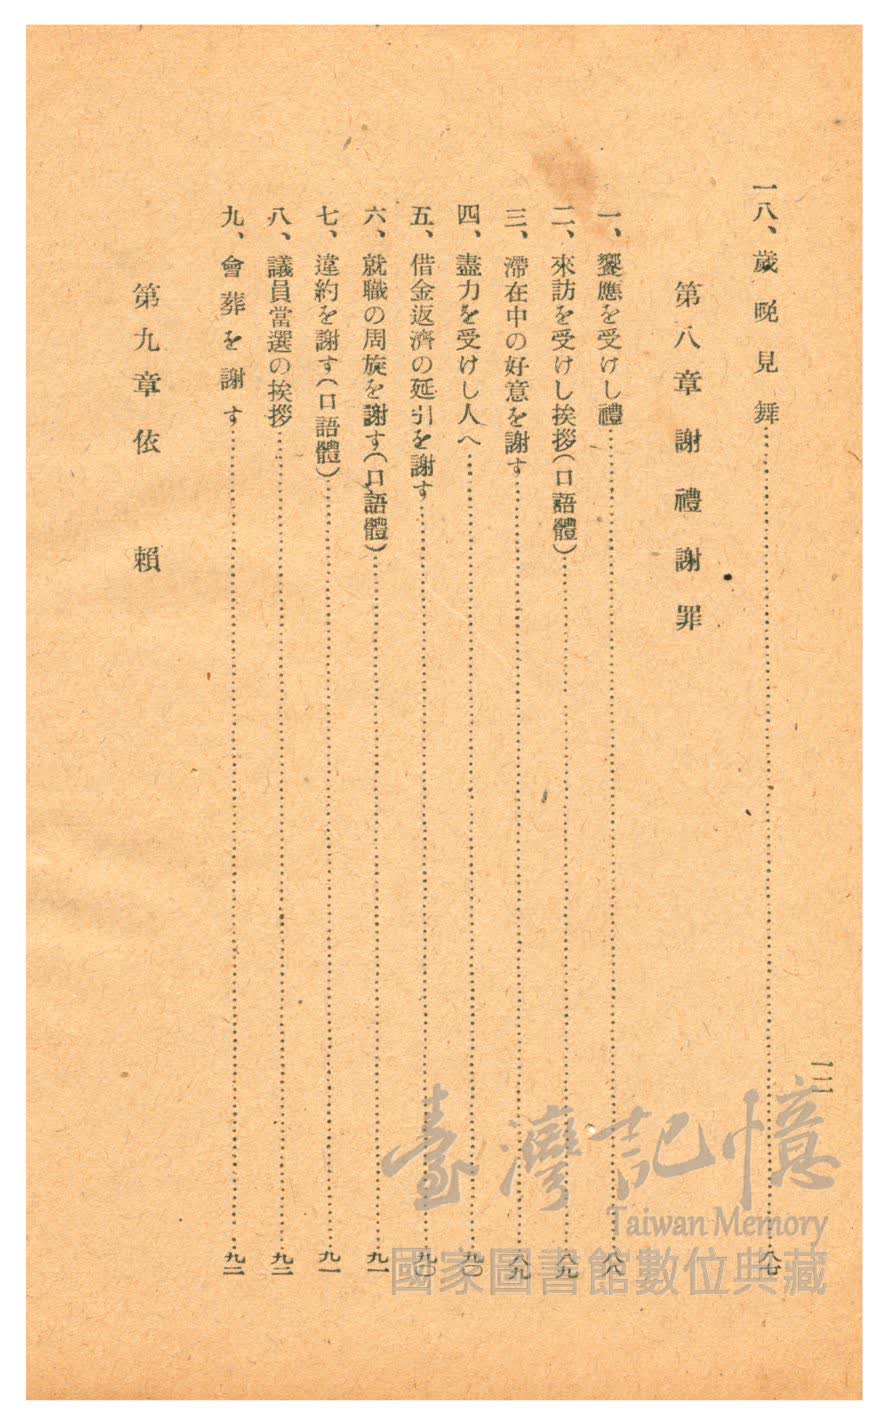 一八、歲晚見舞……八七
第八章 謝禮謝罪
一、饗應を受けし禮……八八
二、來訪を受けし挨拶(口語體)……八九
三、滯在中の好意を謝す……八九
四、盡力を受けし人へ……九〇
五、借金返濟の延引を謝す……九〇
六、就職の周旋を謝す(口語體)……九一
七、違約を謝す(口語體)……九一
八、議員當選の挨拶……九二
九、會葬を謝す……九二
第九章 依賴
一二
臺灣記憶
Taiwan Memory
國家圖書館數位典藏